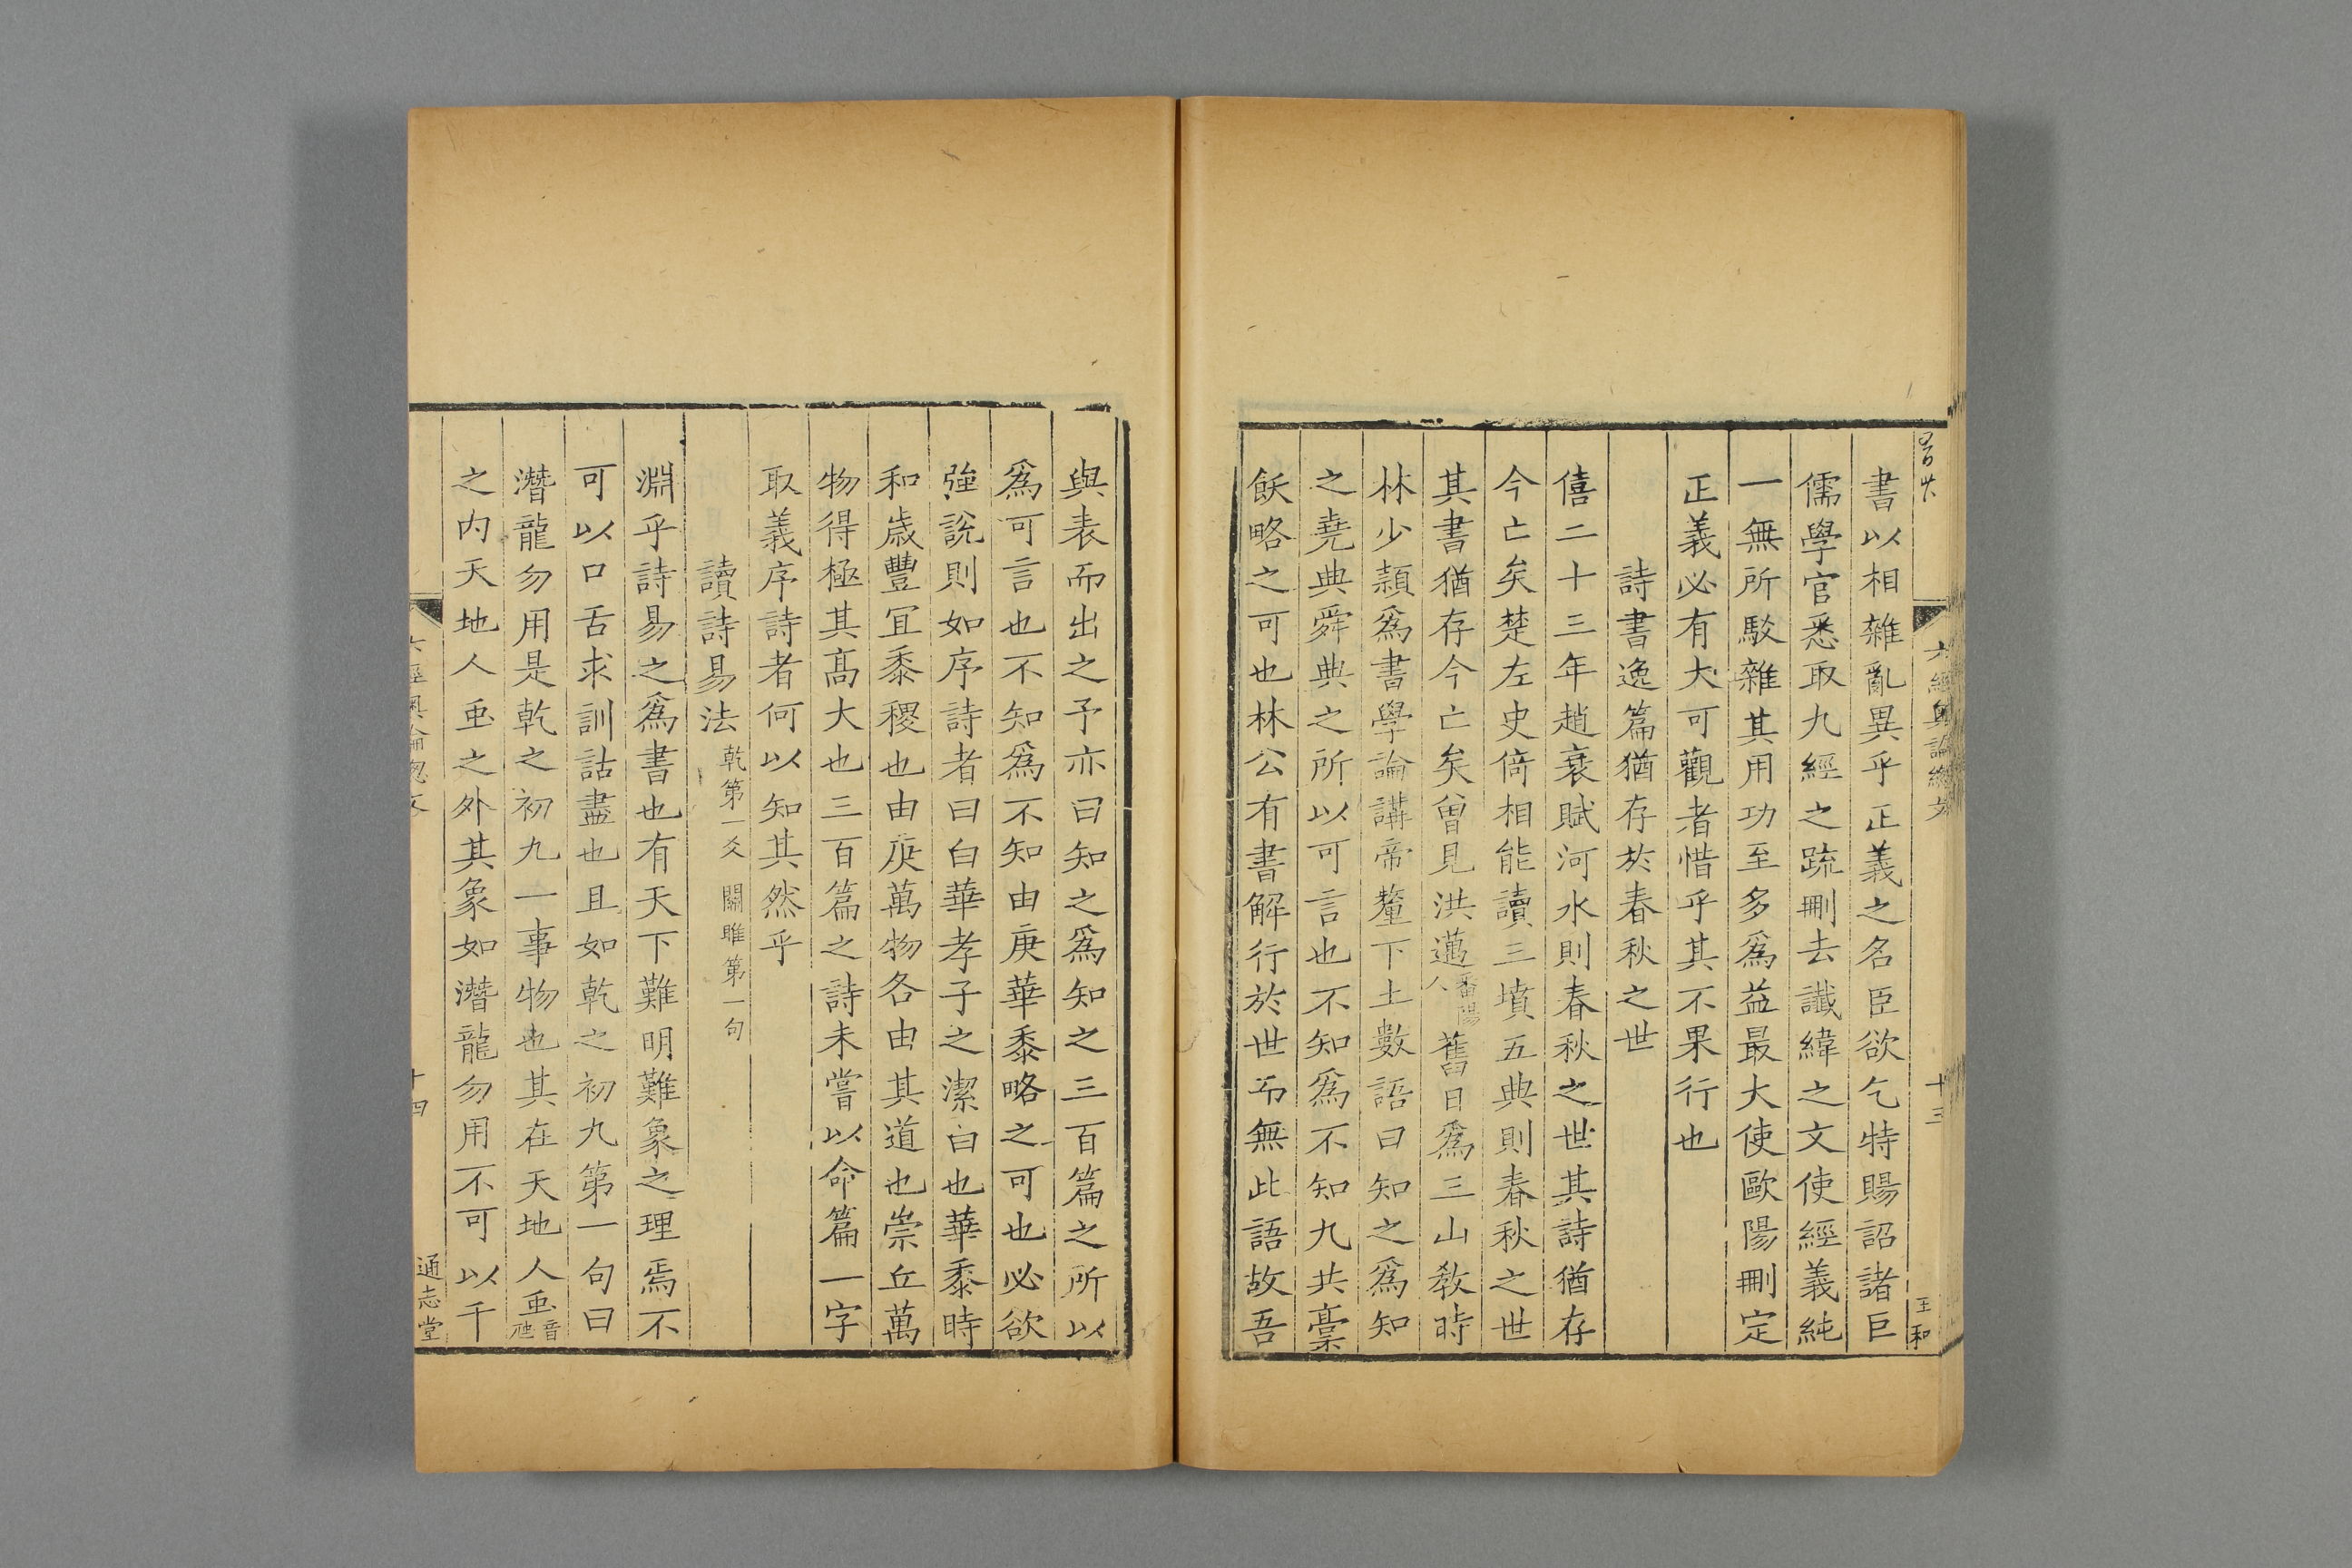 六經奧論緫文
十三
王和
書以相雜亂異乎正義之名臣欲乞特賜詔諸巨
儒學官悉取九經之疏刪去讖緯之文使經義純
一無所駁雜其用功至多爲益最大使歐陽刪定
正義必有大可觀者惜乎其不果行也
詩書逸篇猶存於春秋之世
僖二十三年趙衰賦河水則春秋之世其詩猶存
今亡矣楚左史倚相能讀三墳五典則春秋之世
其書猶存今亡矣曾見洪邁番陽人舊日爲三山敎時
林少頴爲書學諭講帝釐下土數語曰知之爲知
之堯典舜典之所以可言也不知爲不知九共槀
飫略之可也林公有書解行於世而無此語故吾
與表而出之予亦曰知之爲知之三百篇之所以
爲可言也不知爲不知由庚華黍略之可也必欲
強說則如序詩者曰白華孝子之潔白也華黍時
和歲豐冝黍稷也由庚萬物各由其道也崇丘萬
物得極其高大也三百篇之詩未嘗以命篇一字
取義序詩者何以知其然乎
讀詩易法 乾第一爻 關雎第一句
淵乎詩易之爲書也有天下難明難象之理焉不
可以口舌求訓詁盡也且如乾之初九第一句曰
潛龍勿用是乾之初九一事物也其在天地人䖝音虺
之内天地人䖝之外其象如潛龍勿用不可以千
六經奧論緫文
十四
通志堂